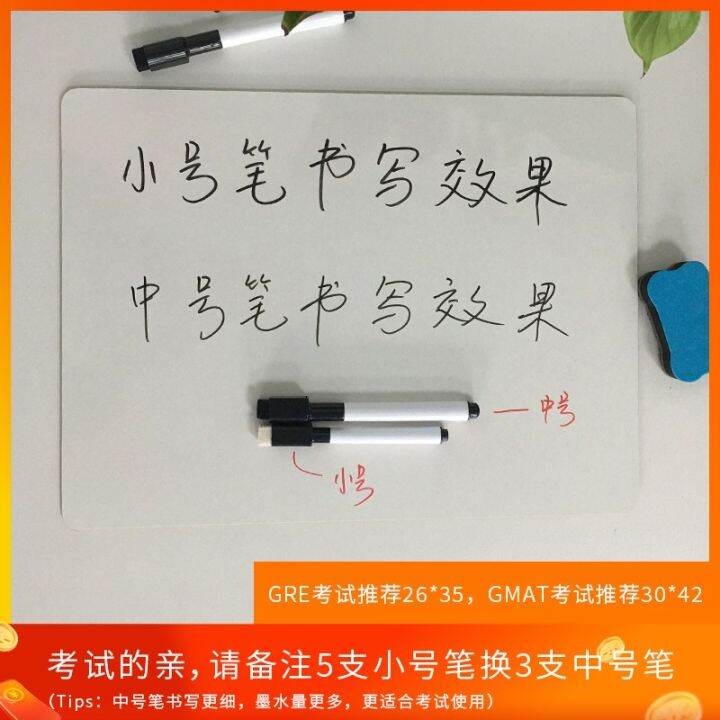 小号笔书写效果
中号笔书写效果
中号
小号
GRE考试推荐26*35，GMAT考试推荐30*42
考试的亲，请备注5支小号笔换3支中号笔
（Tips：中号笔书写更细，墨水量更多，更适合考试使用）